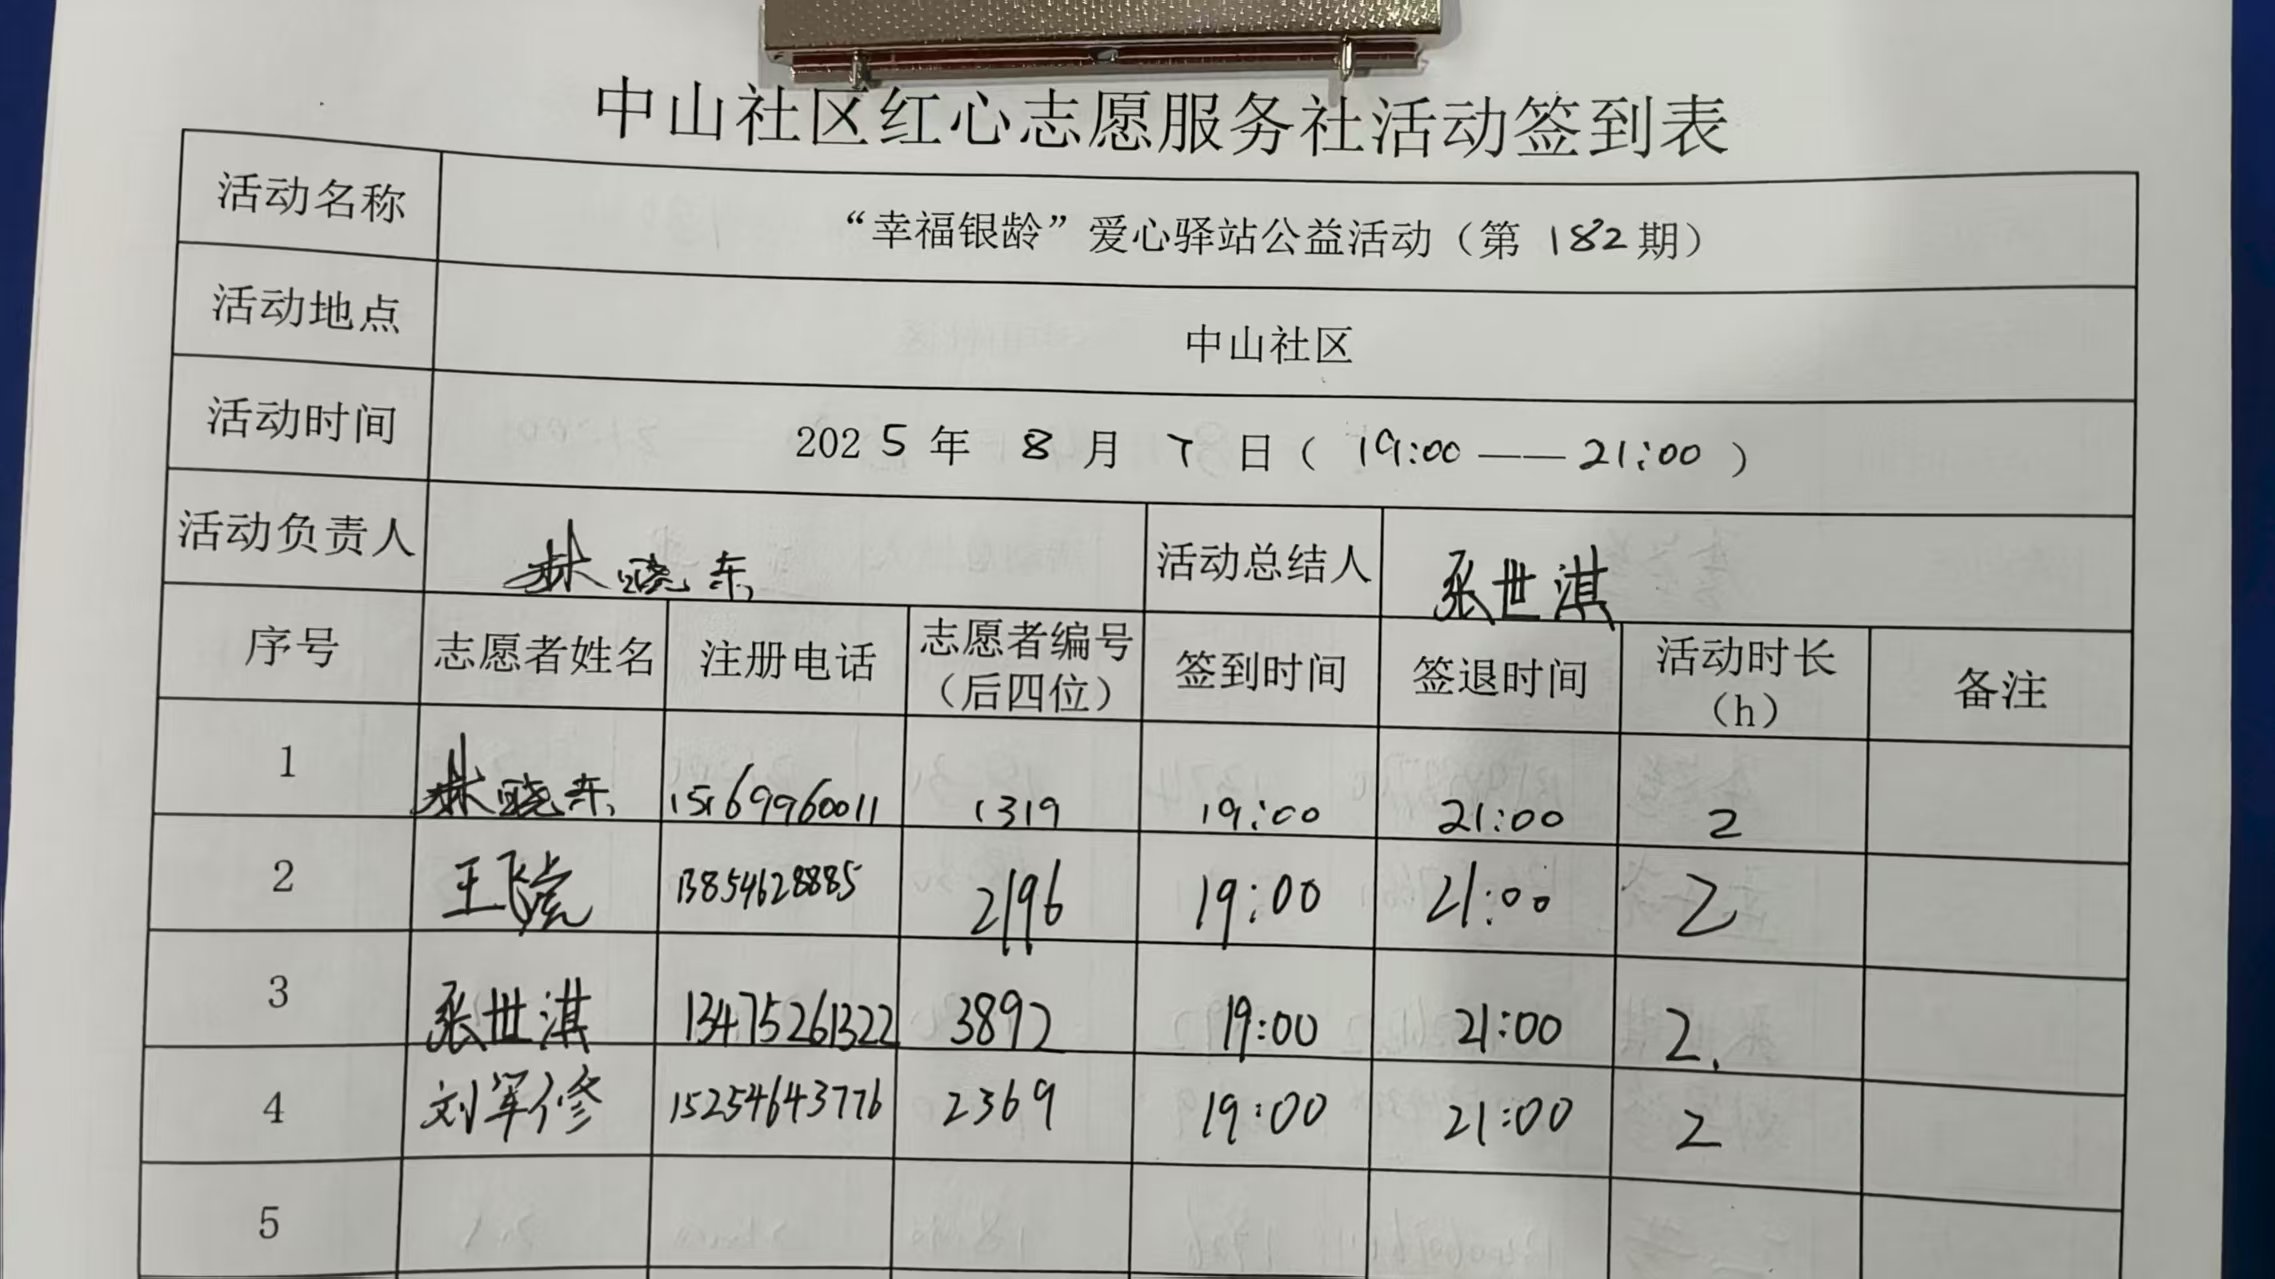 中山社区红心志愿服务社活动签到表
活动名称 “幸福银龄”爱心驿站公益活动（第 182 期）
活动地点 中山社区
活动时间 2025 年 8 月 7 日（ 19:00 —— 21:00 ）
活动负责人 林晓东 活动总结人 张世淇
序号 志愿者姓名 注册电话 志愿者编号（后四位） 签到时间 签退时间 活动时长（h） 备注
1 林晓东 15169960011 1319 19:00 21:00 2
2 王飞虎 13854628885 2196 19:00 21:00 2
3 张世淇 13475261322 3892 19:00 21:00 2.
4 刘军修 15254643776 2369 19:00 21:00 2
5